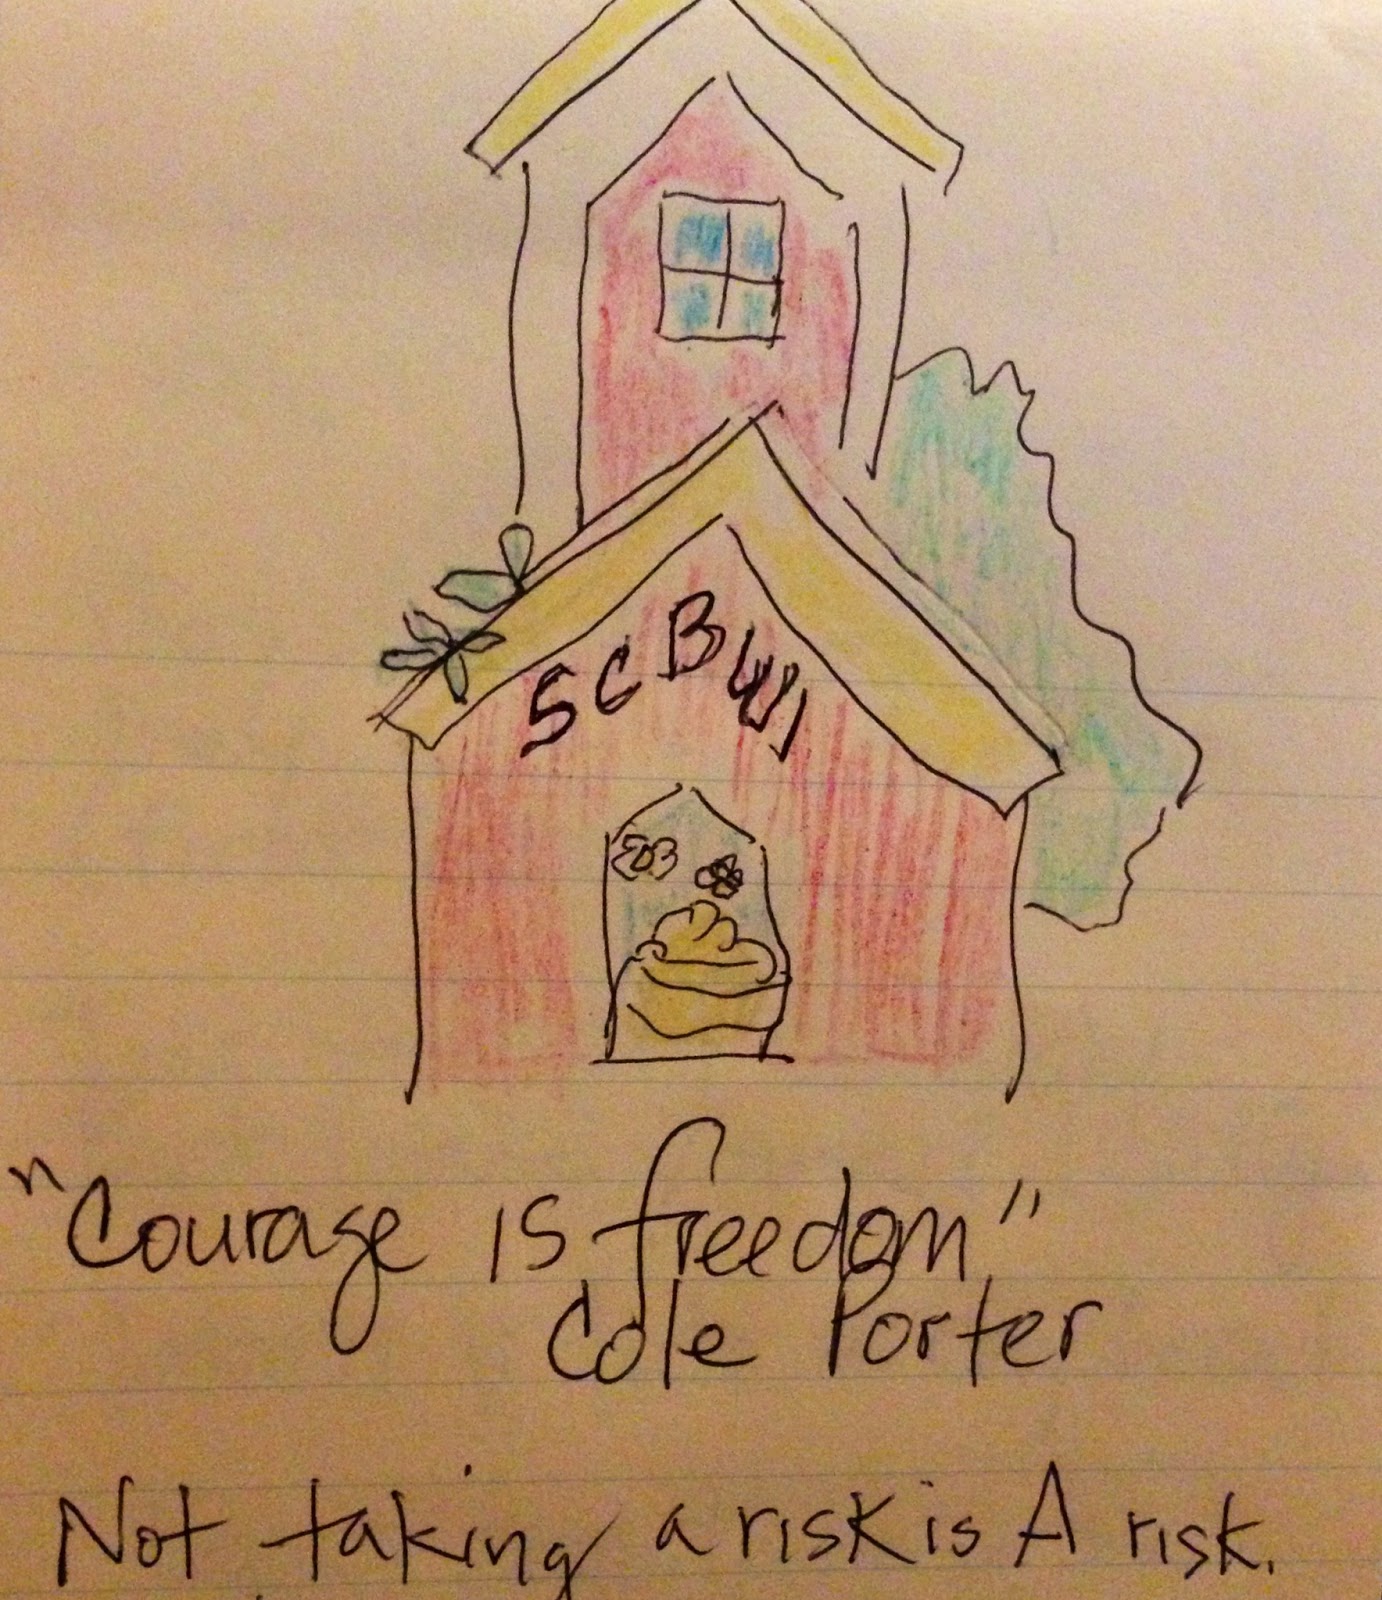 SCBWI
"Courage is freedom"
Cole Porter
Not taking a risk is A risk.